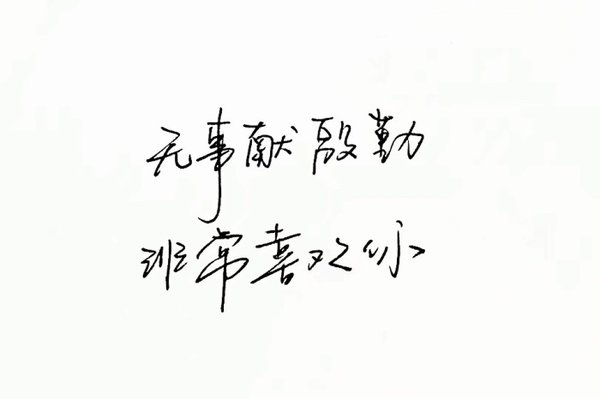 无事献殷勤
非常喜欢你